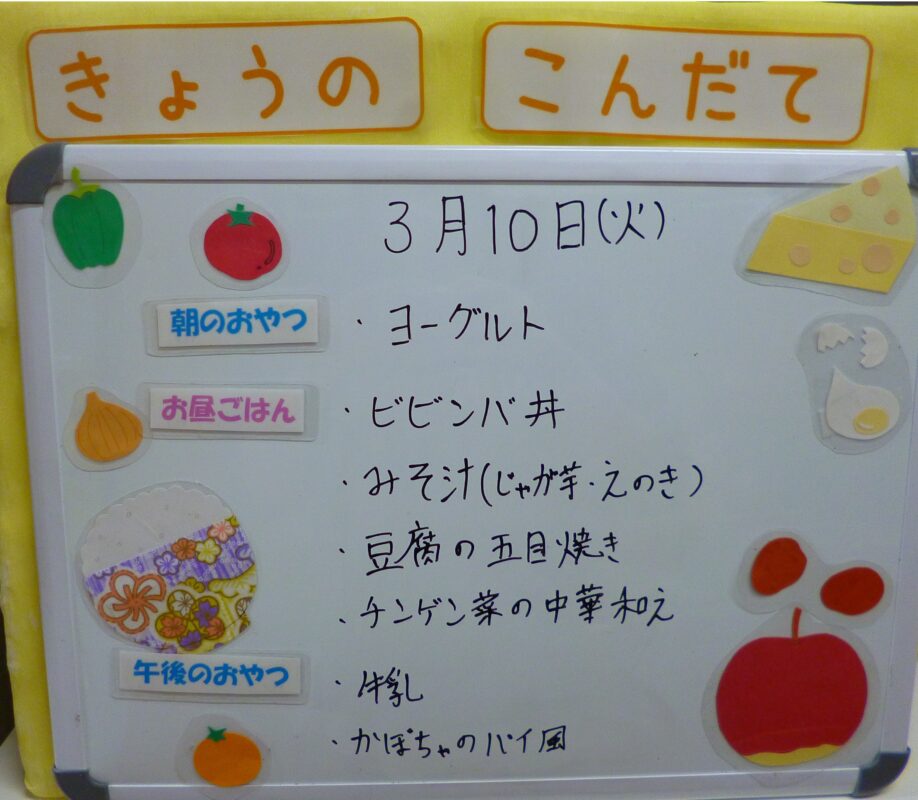 きょうの こんだて
3月10日(火)
朝のおやつ ・ヨーグルト
お昼ごはん ・ビビンバ丼
・みそ汁(じゃが芋・えのき)
・豆腐の五目焼き
・チンゲン菜の中華和え
午後のおやつ ・牛乳
・かぼちゃのパイ風